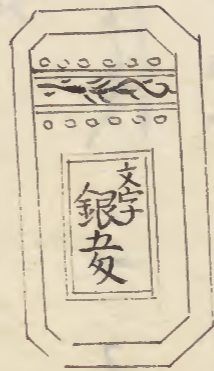 文字
銀五匁